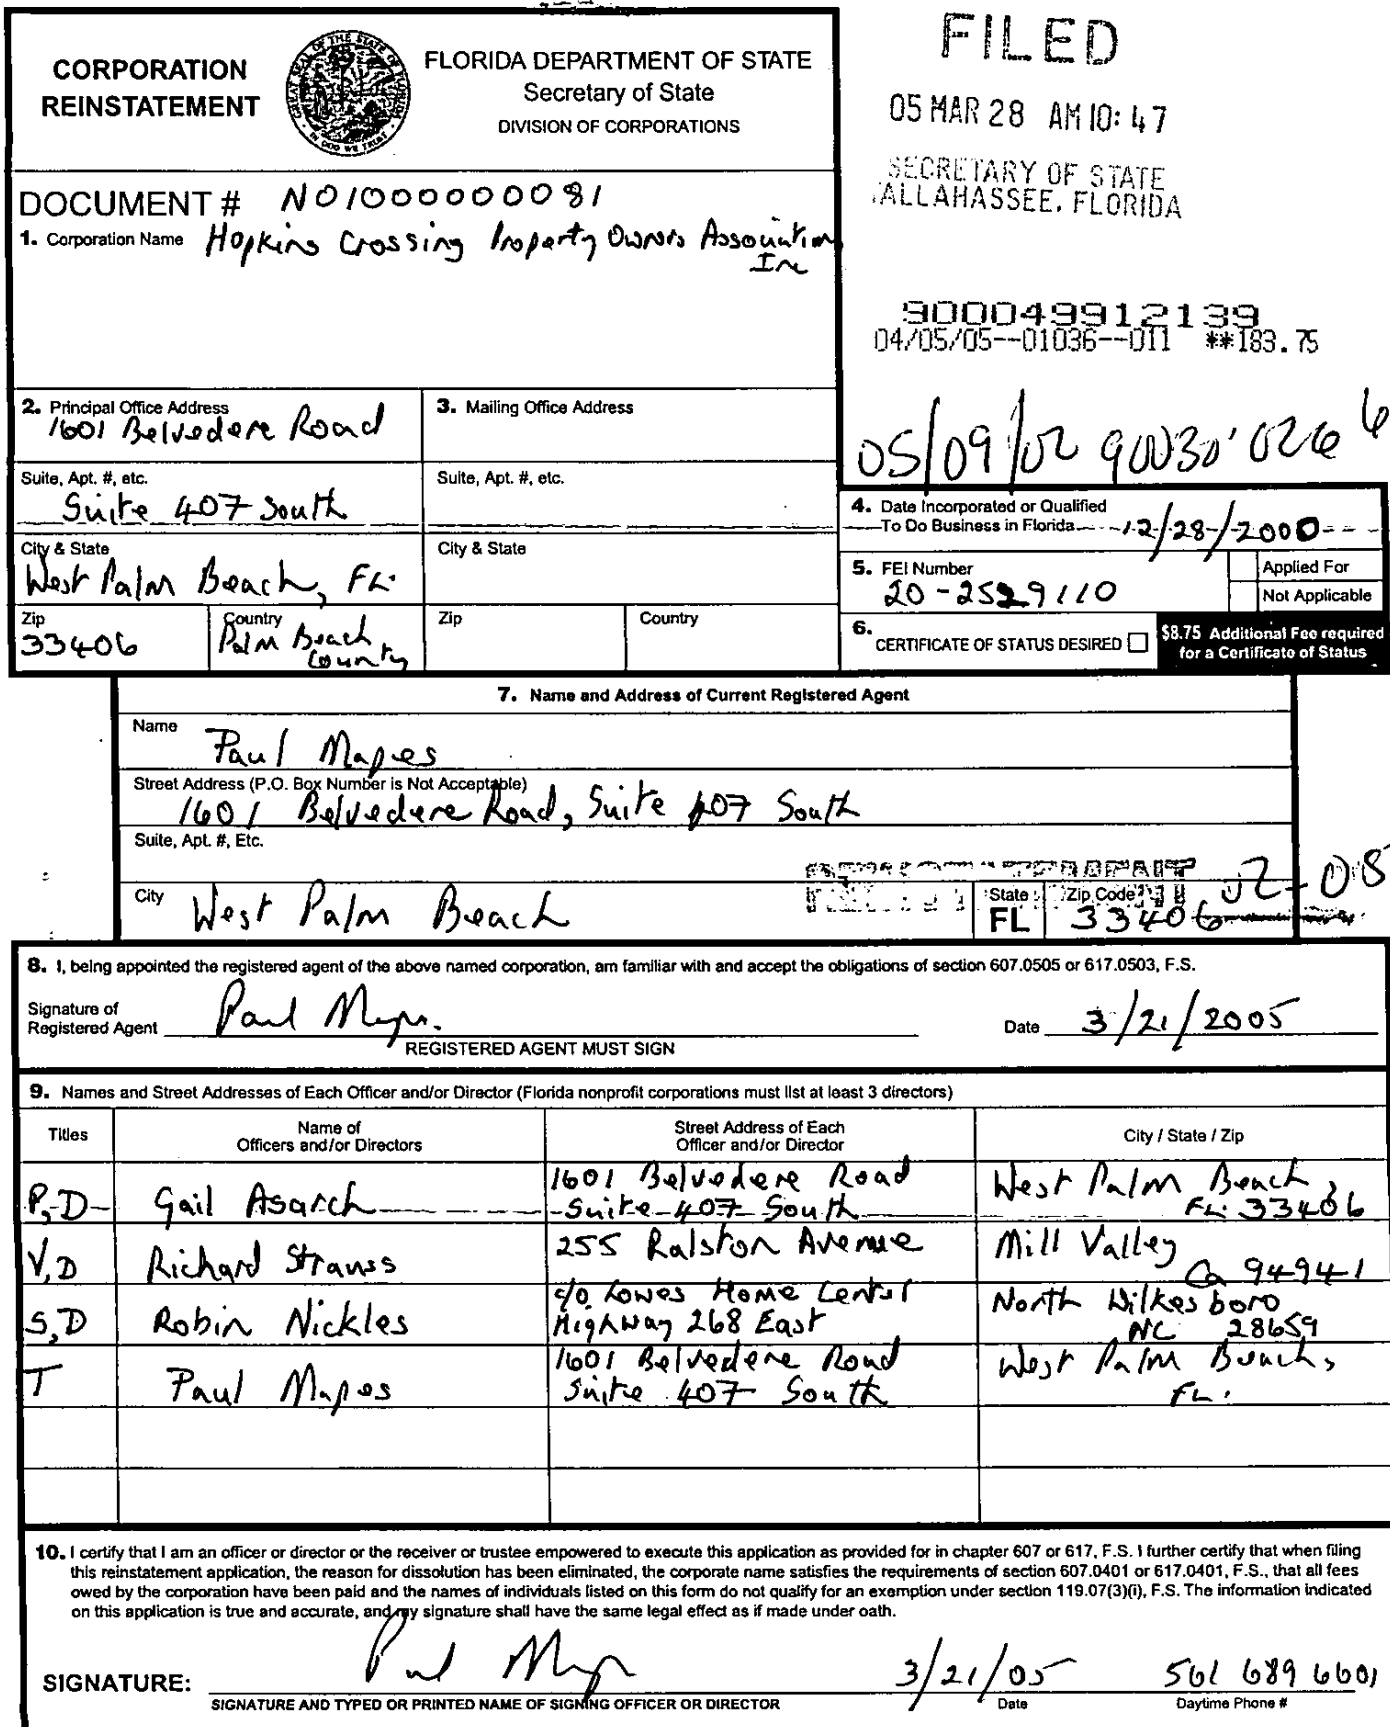 CORPORATION
REINSTATEMENT
GREAT SEAL OF THE STATE OF FLORIDA
IN GOD WE TRUST
FLORIDA DEPARTMENT OF STATE
Secretary of State
DIVISION OF CORPORATIONS
FILED
05 MAR 28 AM 10:47
SECRETARY OF STATE
ALLAHASSEE, FLORIDA
DOCUMENT # N01000000081
1. Corporation Name Hopkins Crossing Property Owners Association
Inc
900049912139
04/05/05--01036--011 **183.75
05/09/02 90030 026 6
2. Principal Office Address
1601 Belvedere Road
3. Mailing Office Address
Suite, Apt. #, etc.
Suite 407 South
Suite, Apt. #, etc.
City & State
West Palm Beach, FL.
City & State
Zip
33406
Country
Palm Beach
County
Zip
Country
4. Date Incorporated or Qualified
To Do Business in Florida 12/28/2000
5. FEI Number
20-2529110
Applied For
Not Applicable
6.
CERTIFICATE OF STATUS DESIRED
$8.75 Additional Fee required
for a Certificate of Status
7. Name and Address of Current Registered Agent
Name
Paul Mapes
Street Address (P.O. Box Number is Not Acceptable)
1601 Belvedere Road, Suite 407 South
Suite, Apt. #, Etc.
REINSTATEMENT 02-05
City West Palm Beach
State
FL
Zip Code
33406
8. I, being appointed the registered agent of the above named corporation, am familiar with and accept the obligations of section 607.0505 or 617.0503, F.S.
Signature of
Registered Agent Paul Mapes
REGISTERED AGENT MUST SIGN
Date 3/21/2005
9. Names and Street Addresses of Each Officer and/or Director (Florida nonprofit corporations must list at least 3 directors)
Titles
Name of
Officers and/or Directors
Street Address of Each
Officer and/or Director
City / State / Zip
P,D Gail Asarch
1601 Belvedere Road
Suite 407 South
West Palm Beach,
FL. 33406
V,D Richard Strauss
255 Ralston Avenue
Mill Valley
Ca 94941
S,D Robin Nickles
c/o Lowes Home Center
Highway 268 East
North Wilkesboro
NC 28659
T Paul Mapes
1601 Belvedere Road
Suite 407 South
West Palm Beach,
FL.
10. I certify that I am an officer or director or the receiver or trustee empowered to execute this application as provided for in chapter 607 or 617, F.S. I further certify that when filing
this reinstatement application, the reason for dissolution has been eliminated, the corporate name satisfies the requirements of section 607.0401 or 617.0401, F.S., that all fees
owed by the corporation have been paid and the names of individuals listed on this form do not qualify for an exemption under section 119.07(3)(i), F.S. The information indicated
on this application is true and accurate, and my signature shall have the same legal effect as if made under oath.
SIGNATURE: Paul Mapes 3/21/05 561 689 6601
SIGNATURE AND TYPED OR PRINTED NAME OF SIGNING OFFICER OR DIRECTOR
Date
Daytime Phone #